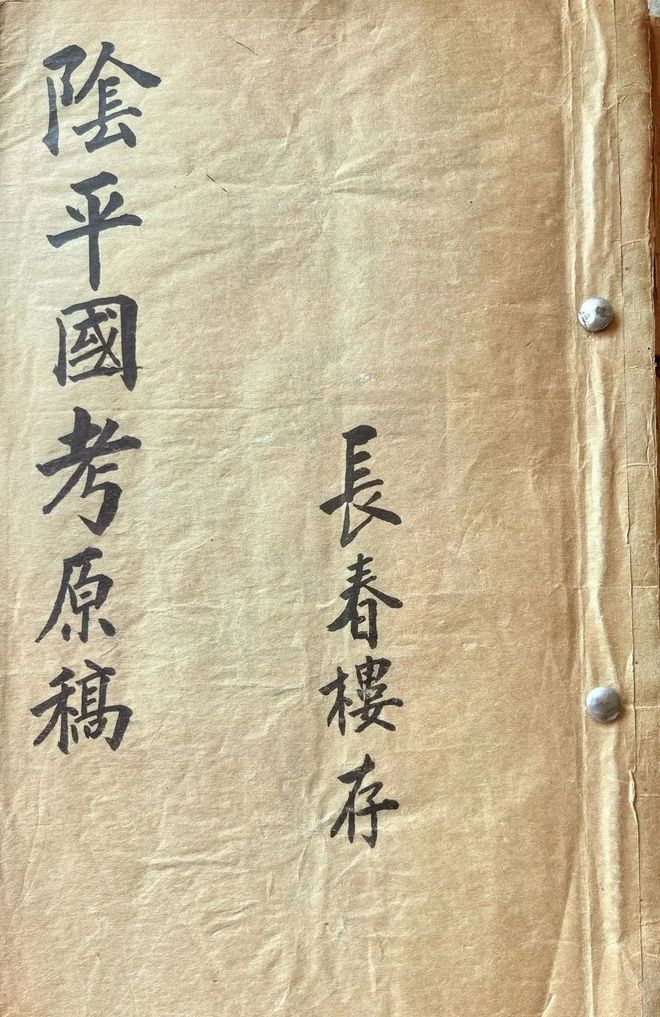 長春樓存
陰平國考原稿